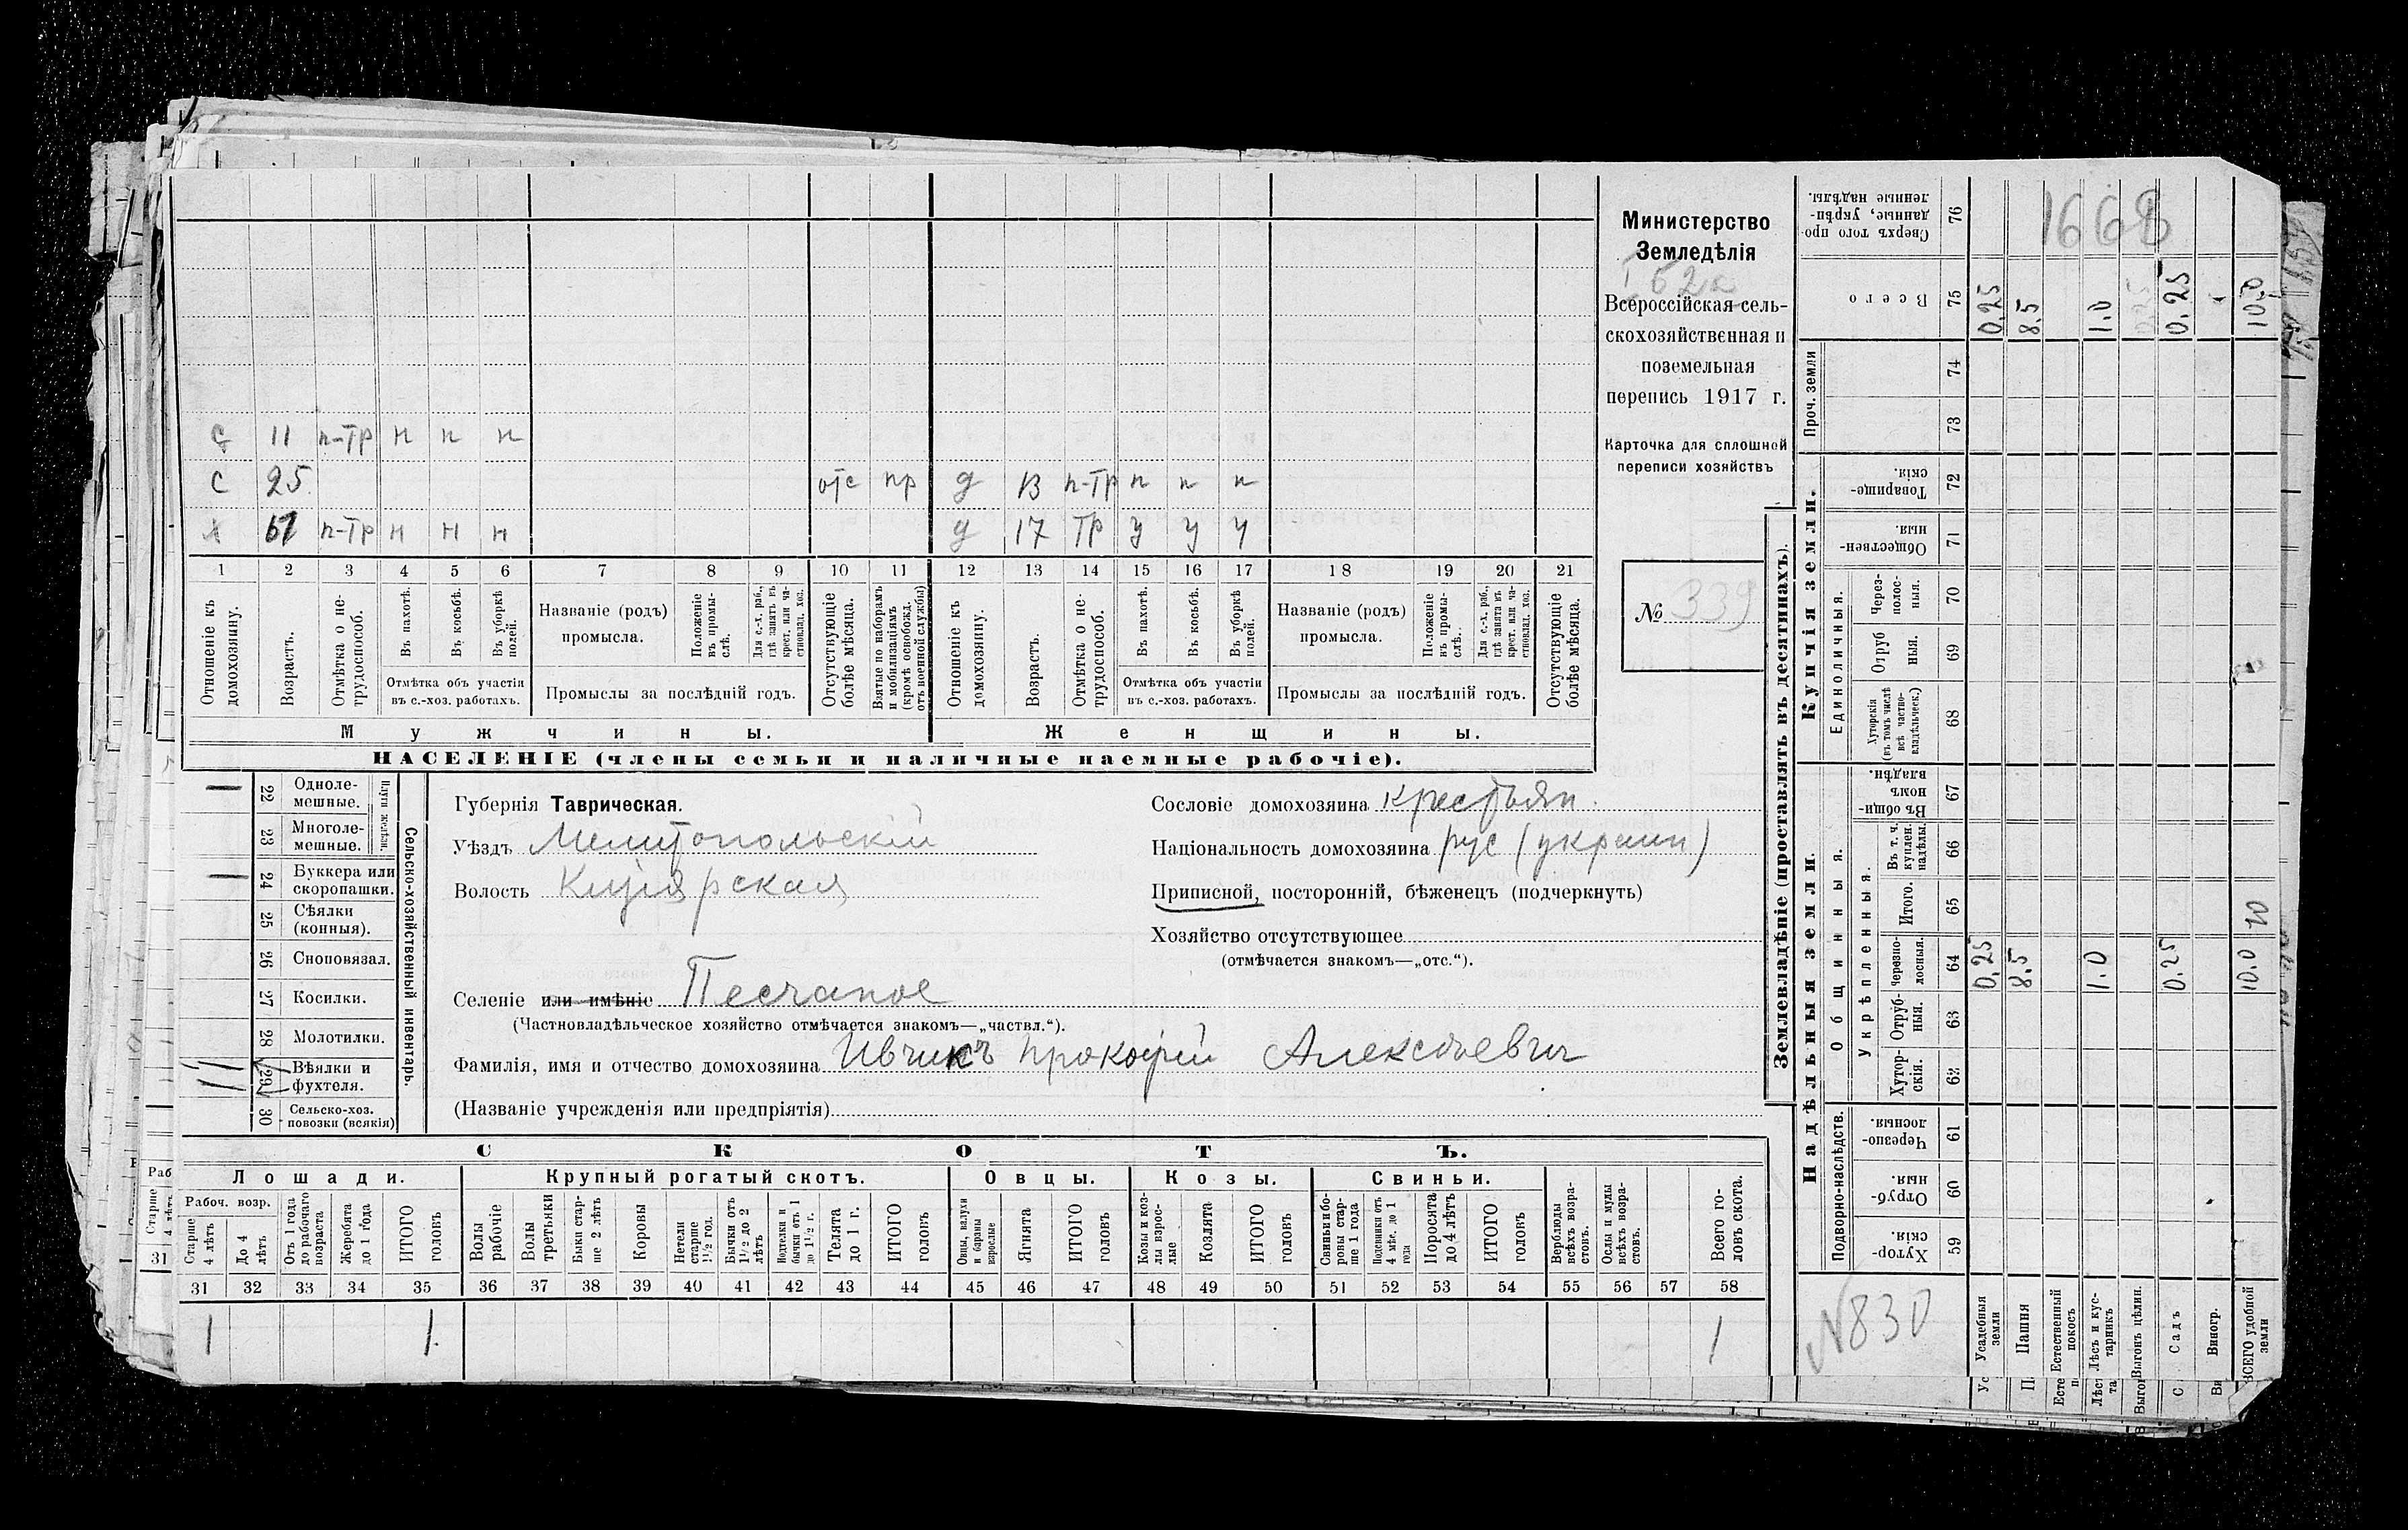 С 11 п-тр н п н
С 25 отс пр д 13 п-тр п п п
Х п-тр н н н д 17 тр у у у
1 2 3 4 5 6 7 8 9 10 11 12 13 14 15 16 17 18 19 20 21
Отношеніе къ домохозяину.
Возрастъ.
Отмѣтка о не-трудоспособ.
Въ пахотѣ.
Въ косьбѣ.
Въ уборкѣ полей.
Отмѣтка объ участіи
въ с.-хоз. работахъ.
Названіе (родъ)
промысла.
Положеніе въ промы-слѣ.
Для с.-х. раб., гдѣ занятъ въ крест. или ча-стновлад. хоз.
Промыслы за послѣдній годъ.
Отсутствующіе болѣе мѣсяца.
Взятые по наборамъ и мобилизаціямъ (кромѣ освобожд. отъ военной службы)
Отношеніе къ домохозяину.
Возрастъ.
Отмѣтка о не-трудоспособ.
Въ пахотѣ.
Въ косьбѣ.
Въ уборкѣ полей.
Отмѣтка объ участіи
въ с.-хоз. работахъ.
Названіе (родъ)
промысла.
Положеніе въ промы-слѣ.
Для с.-х. раб., гдѣ занята въ крест. или ча-стновлад. хоз.
Промыслы за послѣдній годъ.
Отсутствующіе болѣе мѣсяца.
Мужчины. Женщины.
НАСЕЛЕНІЕ (члены семьи и наличные наемные рабочіе).
Министерство
Земледѣлія
Всероссійская сель-
скохозяйственная и
поземельная
перепись 1917 г.
Карточка для сплошной
переписи хозяйствъ
№ 339
22 Одноле-мешные.
23 Многоле-мешные.
Плуги желѣзн.
24 Буккера или скоропашки.
25 Сѣялки (конныя).
26 Сноповязал.
27 Косилки.
28 Молотилки.
29 Вѣялки и фухтеля.
30 Сельско-хоз. повозки (всякія)
Сельско-хозяйственный инвентарь.
Губернія Таврическая.
Уѣздъ Мелитопольскій
Волость Кизіярская
Селеніе или имѣніе Песчаное
(Частновладѣльческое хозяйство отмѣчается знакомъ—„частвл.“).
Фамилія, имя и отчество домохозяина Ивчикъ Прокофій Алексѣевич
(Названіе учрежденія или предпріятія)
Сословіе домохозяина крестьян.
Національность домохозяина рус (украин)
Приписной, посторонній, бѣженецъ (подчеркнуть)
Хозяйство отсутствующее
(отмѣчается знакомъ—„отс.“).
СКОТЪ.
Лошади. Крупный рогатый скотъ. Овцы. Козы. Свиньи.
Рабоч. возр.
Старше 4 лѣтъ
До 4 лѣтъ
Отъ 1 года до рабочаго возраста
Жеребята до 1 года
ИТОГО головъ
Волы рабочіе
Волы третьяки
Быки стар-ше 2 лѣтъ
Коровы
Нетели старше 1 1/2 год.
Бычки отъ 1 1/2 до 2 лѣтъ
Подтелки и бычки отъ 1 до 1 1/2 г.
Телята до 1 г.
ИТОГО головъ
Овцы, валухи и бараны взрослые
Ягнята
ИТОГО головъ
Козы и коз-лы взрос-лые
Козлята
ИТОГО головъ
Свиньи и бо-ровы стар-ше 1 года
Подсвинки отъ 4 мѣс. до 1 года
Поросята до 4 лѣтъ
ИТОГО головъ
Верблюды всѣхъ возра-стовъ.
Ослы и мулы всѣхъ возра-стовъ.
Всего го-ловъ скота.
31 32 33 34 35 36 37 38 39 40 41 42 43 44 45 46 47 48 49 50 51 52 53 54 55 56 57 58
1 1. 1
Землевладѣніе (проставлять въ десятинахъ).
Надѣльныя земли. Купчія земли.
Подворно-наслѣдств.
Общинныя.
Укрѣпленныя.
Единоличныя.
Проч. земли
Хутор-скія. 59
Отруб-ныя. 60
Черезпо-лосныя. 61
Хутор-скія. 62
Отруб-ныя. 63
Черезпо-лосныя. 64
Итого. 65
Въ т. ч. куплен. надѣлы. 66
Въ общи-номъ владѣн. 67
Хуторскія (въ томъ числѣ всѣ частно-владѣльческ.) 68
Отруб ныя. 69
Через-полос-ныя. 70
Обществен-ныя. 71
Товарище-скія. 72
73
74
Всего 75
Сверхъ того про-данные, укрѣп-ленные надѣлы. 76
Усадебныя земли 0.25 0.25
Пашня 8.5 8.5
Естественный покосъ
Лѣсъ и кус-тарникъ 1.0 1.0
Выгонъ цѣлин.
Садъ 0.25 0.25
Виногр.
ВСЕГО удобной земли 10.0 10 10.0
1668
№830